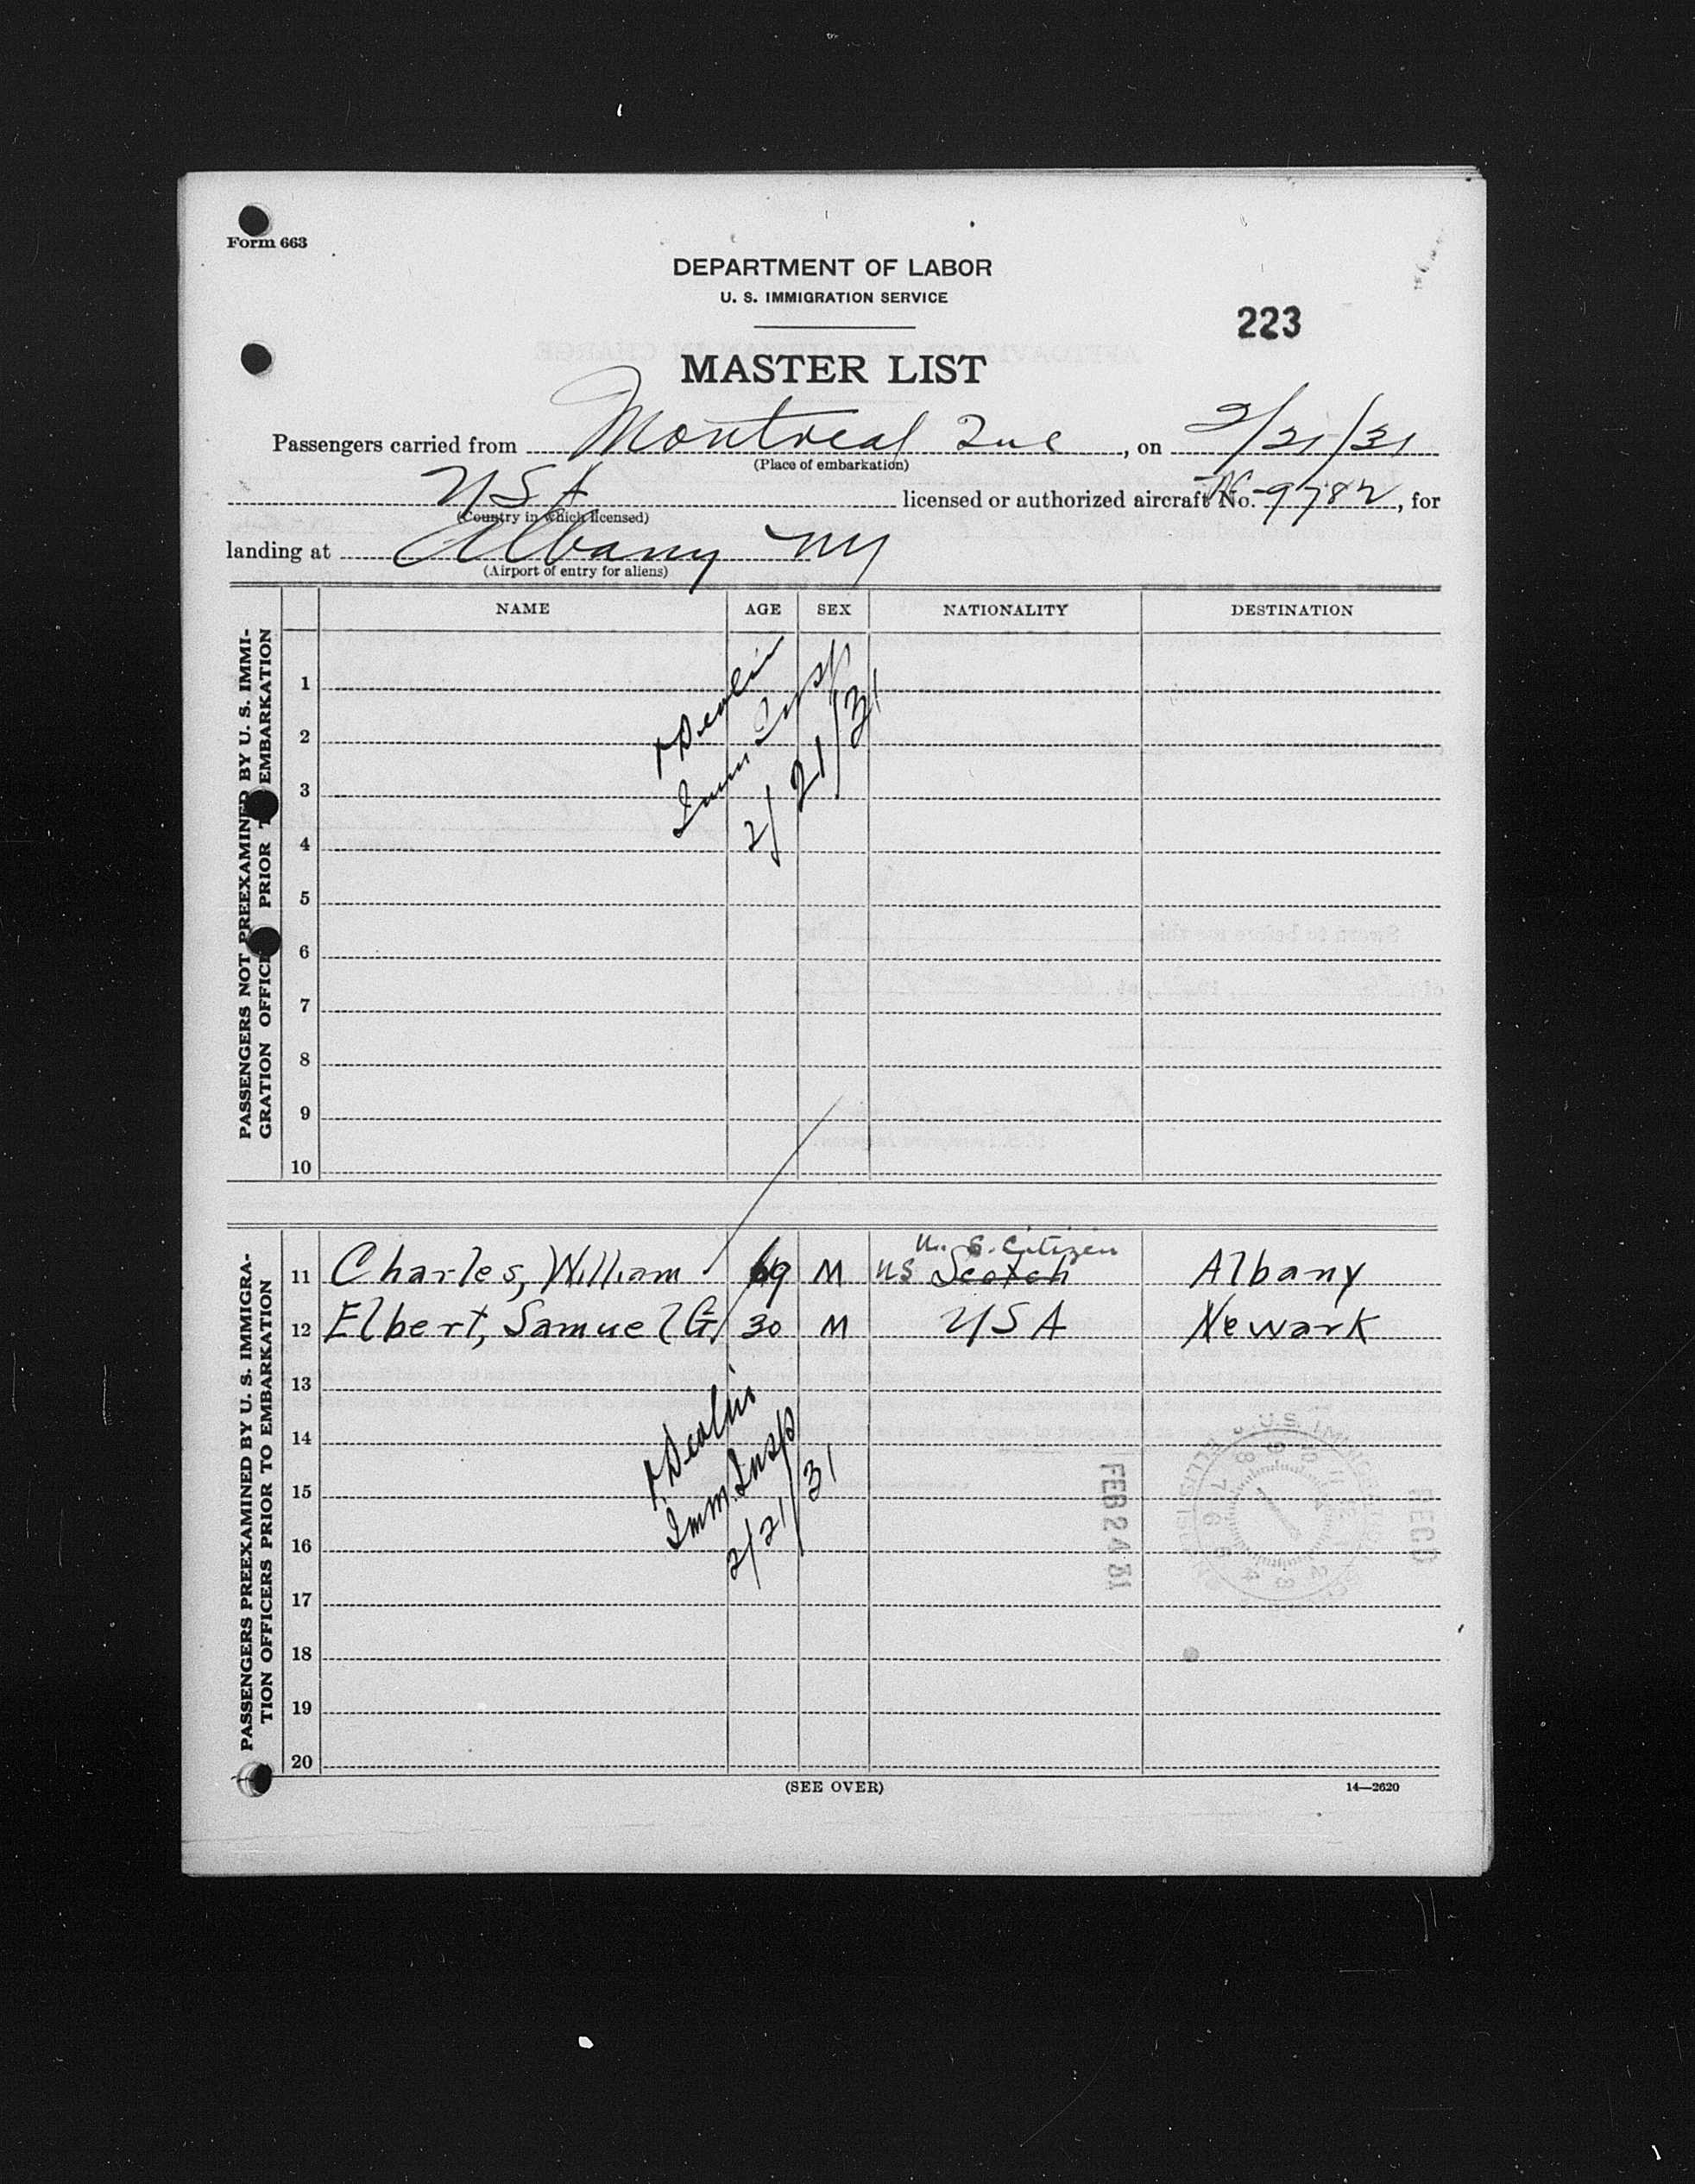 Form 663
DEPARTMENT OF LABOR
U. S. IMMIGRATION SERVICE
223
MASTER LIST
Passengers carried from Montreal Que, on 2/21/31
(Place of embarkation)
USA licensed or authorized aircraft No. NC-9782, for
(Country in which licensed)
landing at Albany NY
(Airport of entry for aliens)
NAME AGE SEX NATIONALITY DESTINATION
PASSENGERS NOT PREEXAMINED BY U. S. IMMI-
GRATION OFFICE PRIOR T EMBARKATION
1
2
3
4
5
6
7
8
9
10
Imm Insp
2/21/31
PASSENGERS PREEXAMINED BY U. S. IMMIGRA-
TION OFFICERS PRIOR TO EMBARKATION
U. S. Citizen
11 Charles, William 69 M US Scotch Albany
12 Elbert, Samuel G. 30 M USA Newark
13
14
15
16
17
18
19
20
Imm. Insp
2/21/31
FEB 24 31
RECD
(SEE OVER)
14—2620